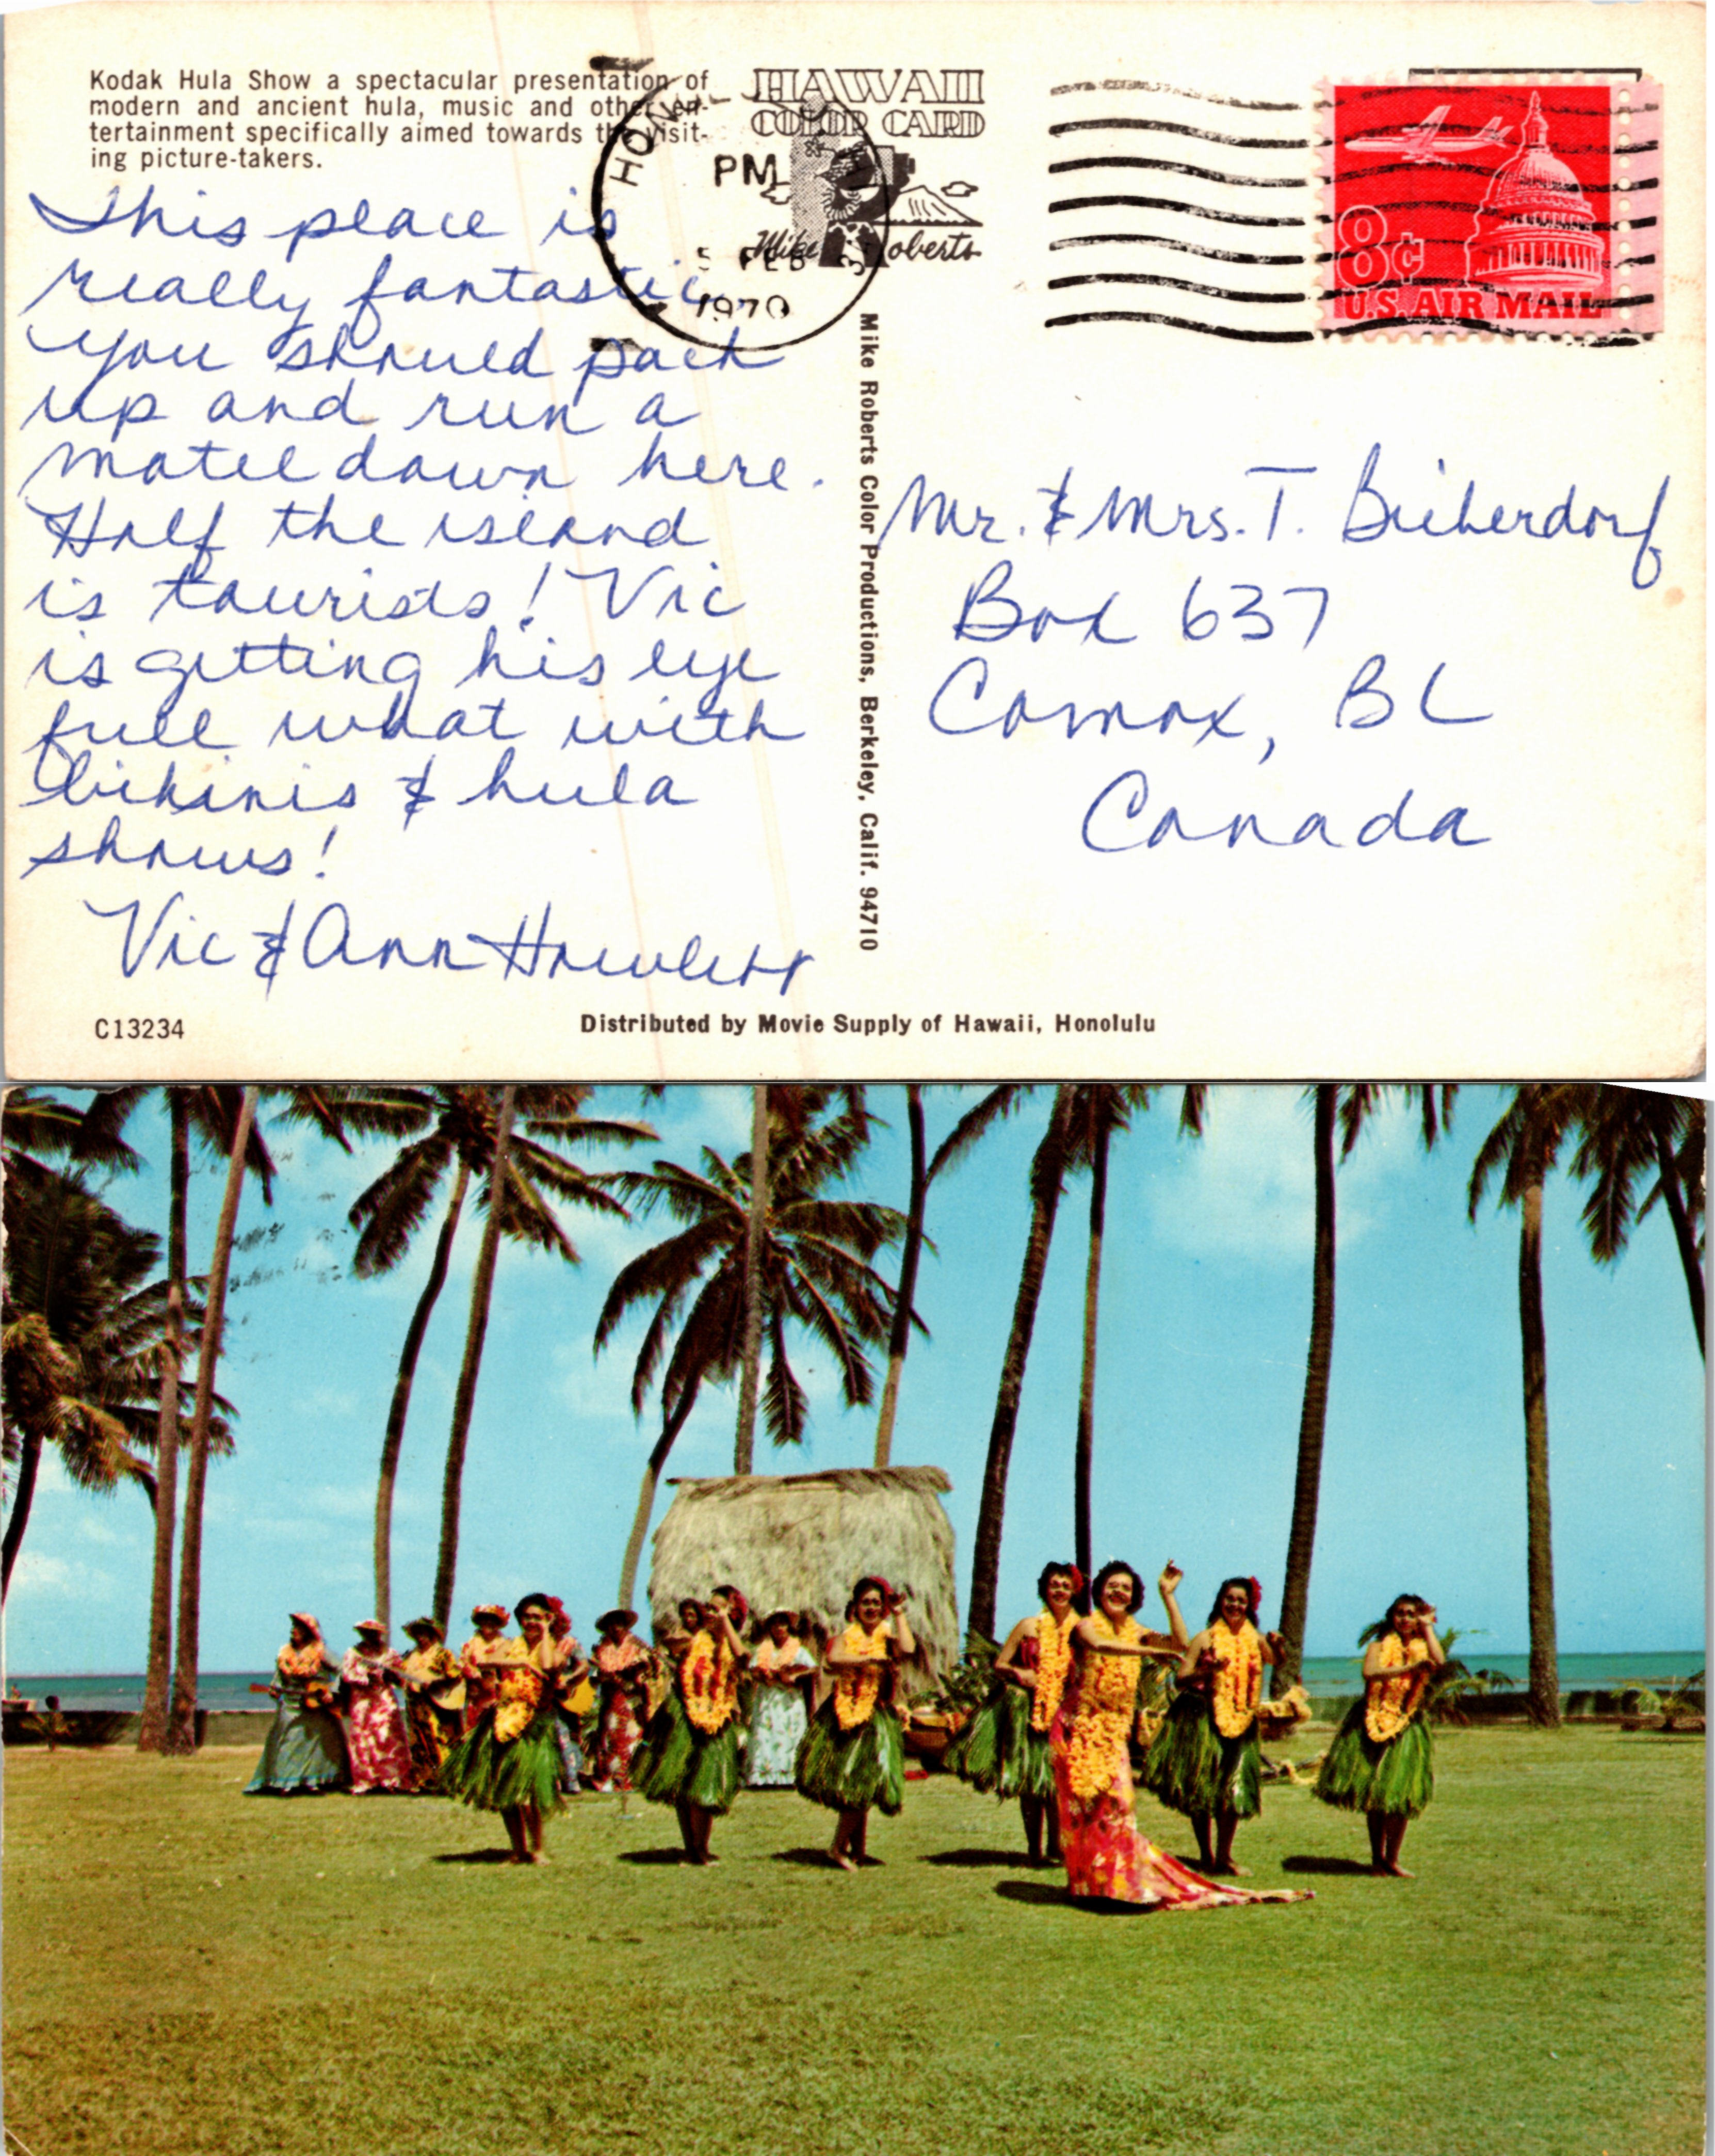 Kodak Hula Show a spectacular presentation of
modern and ancient hula, music and other en-
tertainment specifically aimed towards the visit-
ing picture-takers.
HAWAII
COLOR CARD
Mike Roberts
HONOLULU HI
PM
5 FEB
1970
8¢
U.S. AIR MAIL
This place is
really fantastic
you should pack
up and run a
motel down here.
Half the island
is tourists! Vic
is getting his eye
full what with
bikinis & hula
shows!
Vic & Ann Howlett
Mike Roberts Color Productions, Berkeley, Calif. 94710
Mr. & Mrs. T. Bieherdorf
Box 637
Comox, BC
Canada
C13234
Distributed by Movie Supply of Hawaii, Honolulu